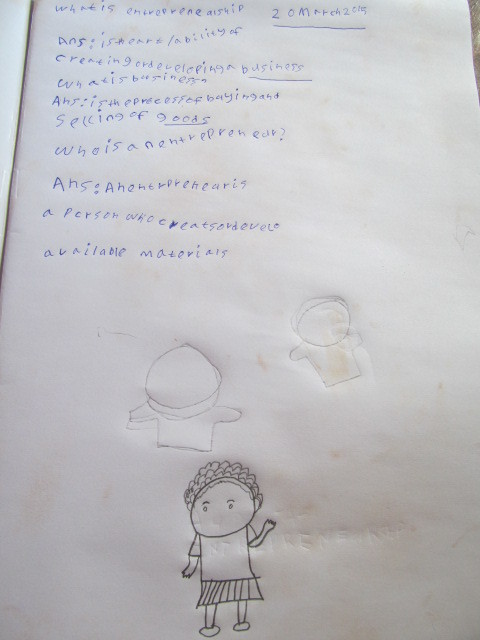 what is entrepreneurship 20 March 2019
Ans: is the art/ability of
creating or developing a business
what is business
Ans: is the process of buying and
selling of goods
who is an entrepreneur?
Ans: An entreprenear is
a person who creats or develo
available materials